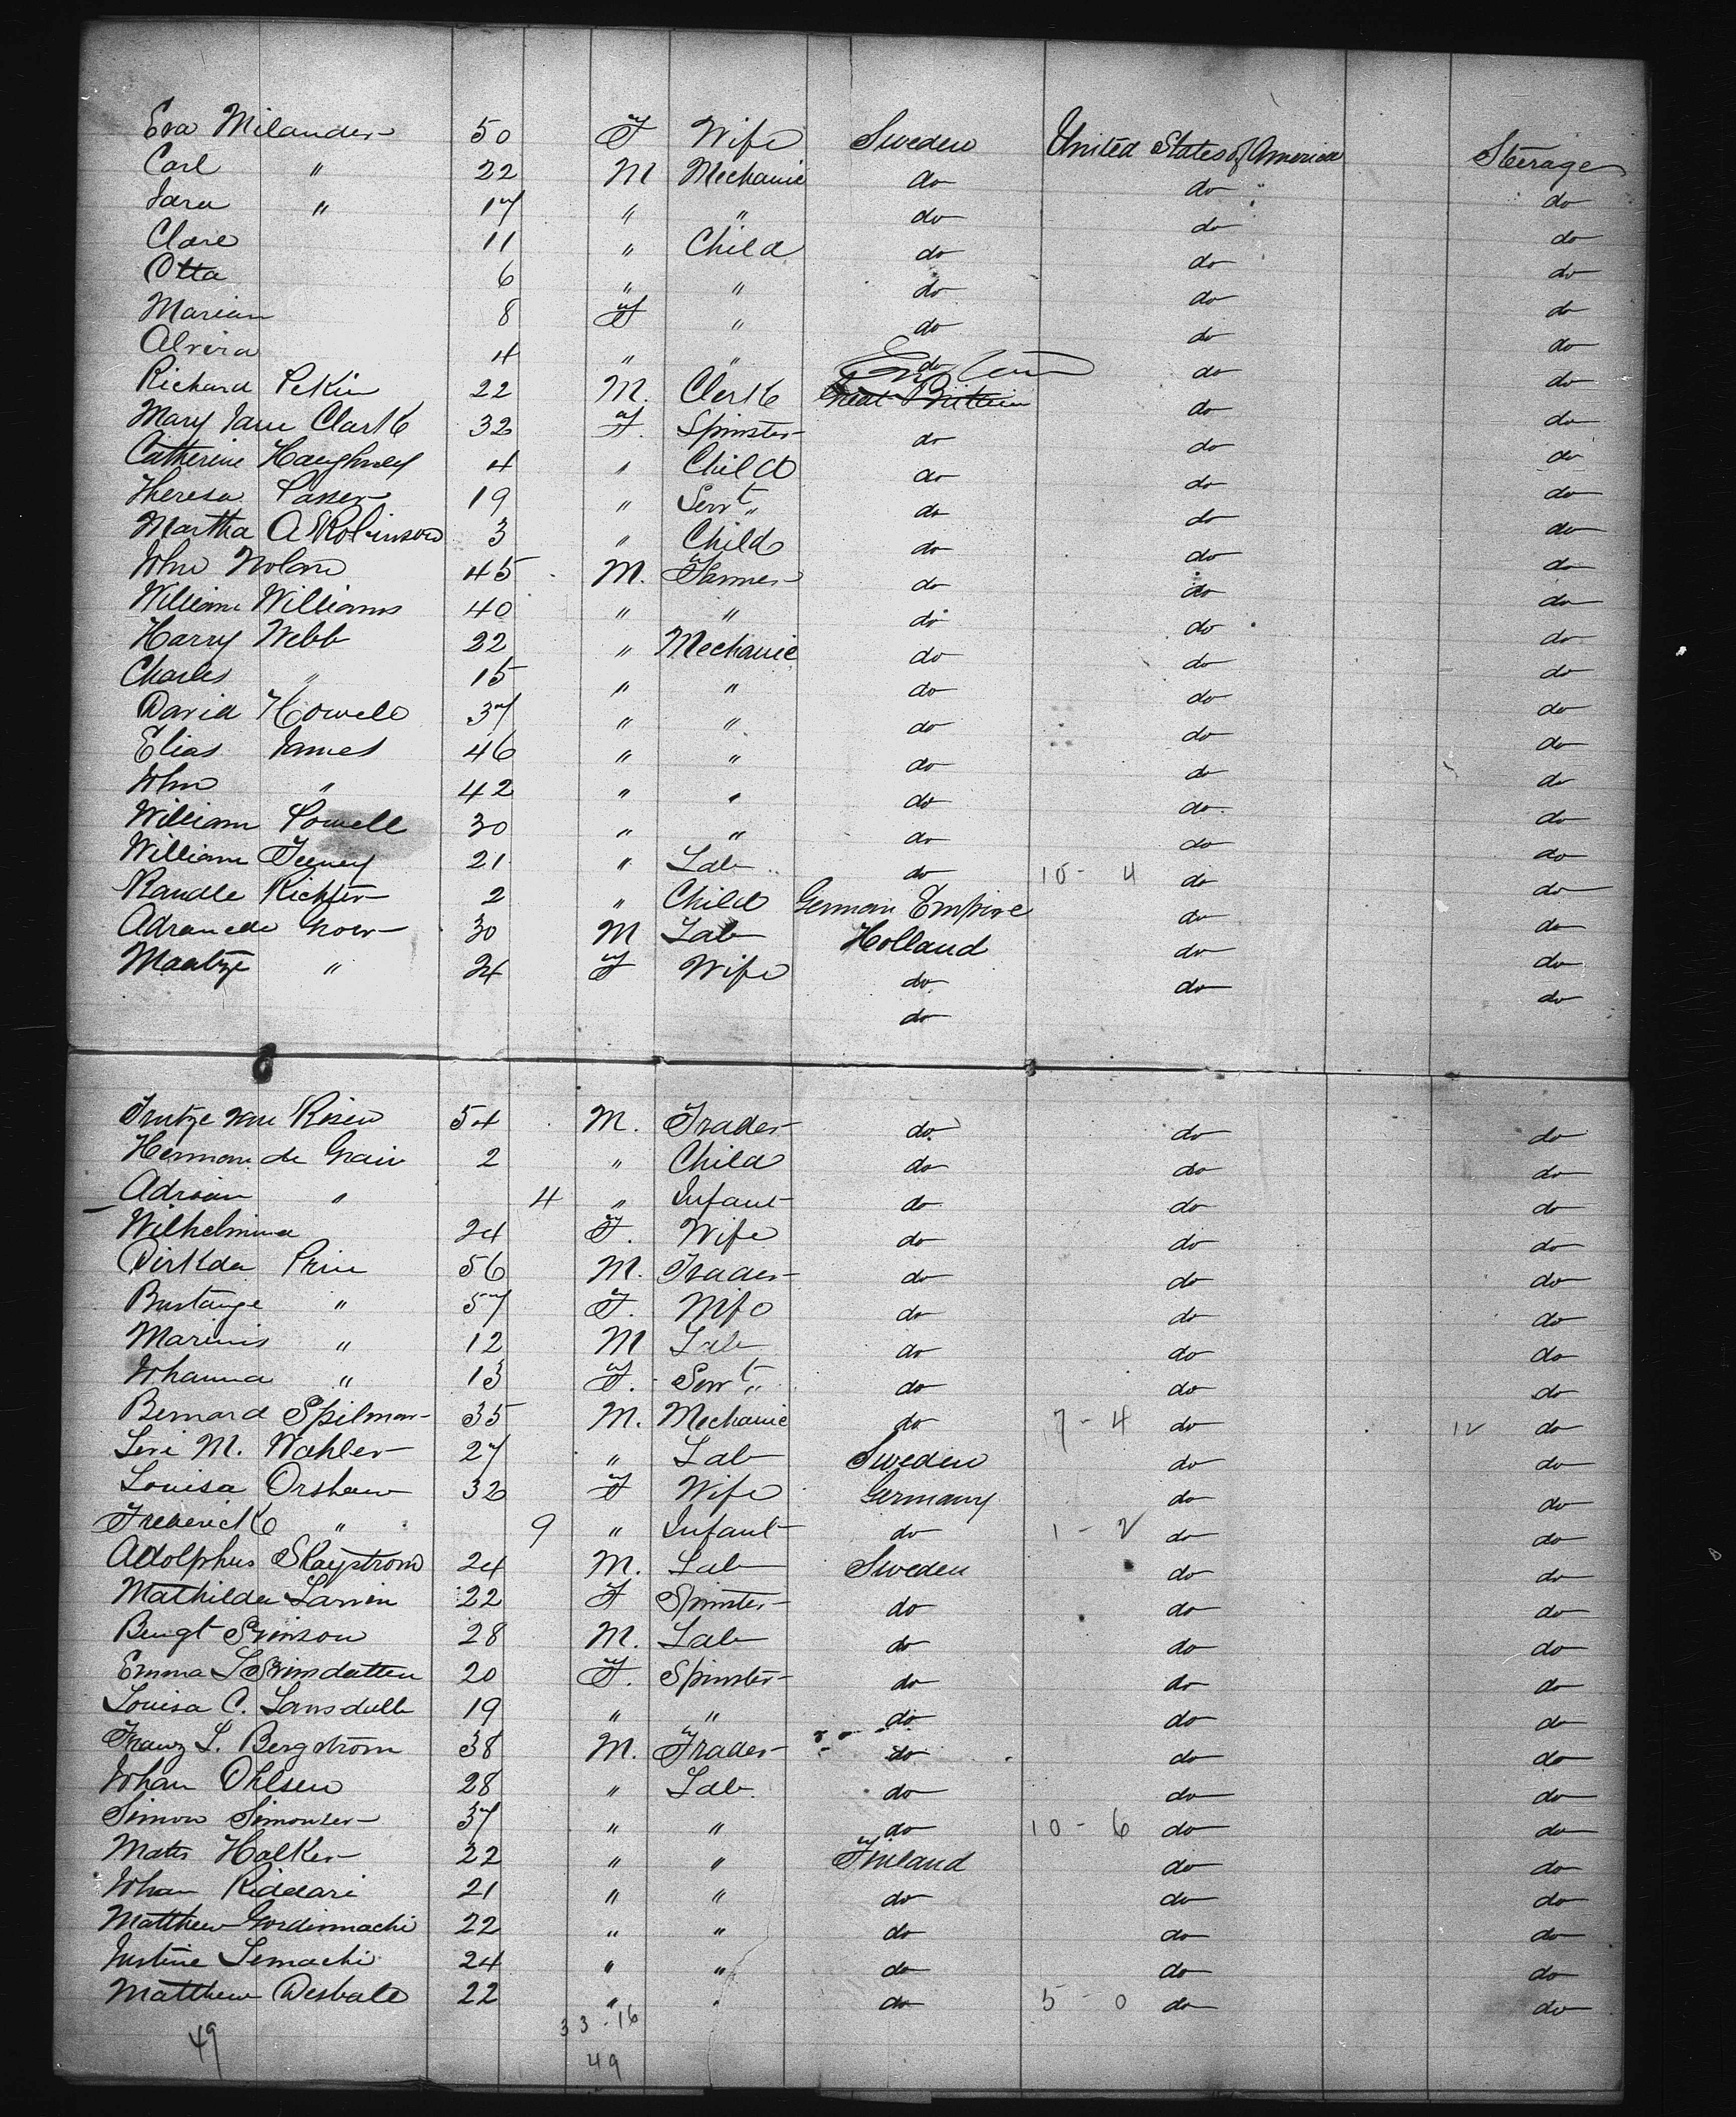 Eva Milander 50 F Wife Sweden United States of America Steerage
Carl " 22 M Mechanic do do do
Jara " 17 " " do do do
Clare 11 " Child do do do
Otta 6 " " do do do
Marian 8 F " do do do
Alvira 4 " " do do do
Richard Pekin 22 M. Clerk Great Brittain do do
Mary Jane Clark 32 F. Spinster do do do
Catherine Haughney 4 " Child do do do
Theresa Passer 19 " Servt do do do
Martha A Robinson 3 " Child do do do
John Nolan 45 M. Farmer do do do
William Williams 40 " " do do do
Harry Webb 22 " Mechanic do do do
Charles " 15 " " do do do
David Howell 37 " " do do do
Elias James 46 " " do do do
John " 42 " " do do do
William Powell 30 " " do do do
William Feeney 21 " Lab do 10 - 4 do do
Randle Richter 2 " Child German Empire do do
30 M Lab Holland do do
Maatze " 24 F Wife do do do
do
van Rosen 54 M. Trader do do do
Herman de 2 " Child do do do
Adrian " 4 " Infant do do do
Wilhelmina 24 F. Wife do do do
Dirkda Prin 56 M. Trader do do do
" 57 F. Wife do do do
Marinis " 12 M Lab do do do
Johanna " 13 F. Servt " do do do
Bernard Spilman 35 M. Mechanic do 7 - 4 do 12 do
Levi M. Wahler 27 " Lab Sweden do do
Louisa Orshaw 32 F Wife Germany do do
Frederick " 9 " Infant do 1 - 2 do do
Adolphus Skaystrom 24 M. Lab Sweden do do
Mathilda Larsin 22 F Spinster do do do
Bengt Svinson 28 M. Lab do do do
Emma L 20 F. Spinster do do do
Louisa C. Lansdulb 19 " " do do do
Franz L. Bergstrom 38 M. Trader do do do
Johan Ohlsen 28 " Lab do do do
Simon Simonsen 37 " " do 10 - 6 do do
Matts Halker 22 " " Finland do do
Johan Riddari 21 " " do do do
Matthew Gordinmachi 22 " " do do do
Justine Lemachi 24 " " do do do
Matthew Desbale 22 " " do 5 - 0 do do
49 33 - 16
49